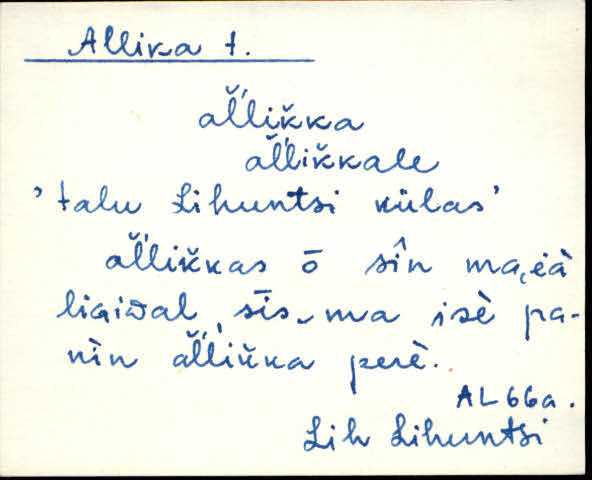 Allika t.
al̆ĺik̆ka
al̆ĺik̆kale
'talu Lihuntsi külas'
al̆ĺik̆kas ō sîn ma,èà
ligiđal, sīs ma isè pa-
nìn al̆ĺik̆ka perè.
AL66a.
Lih Lihuntsi